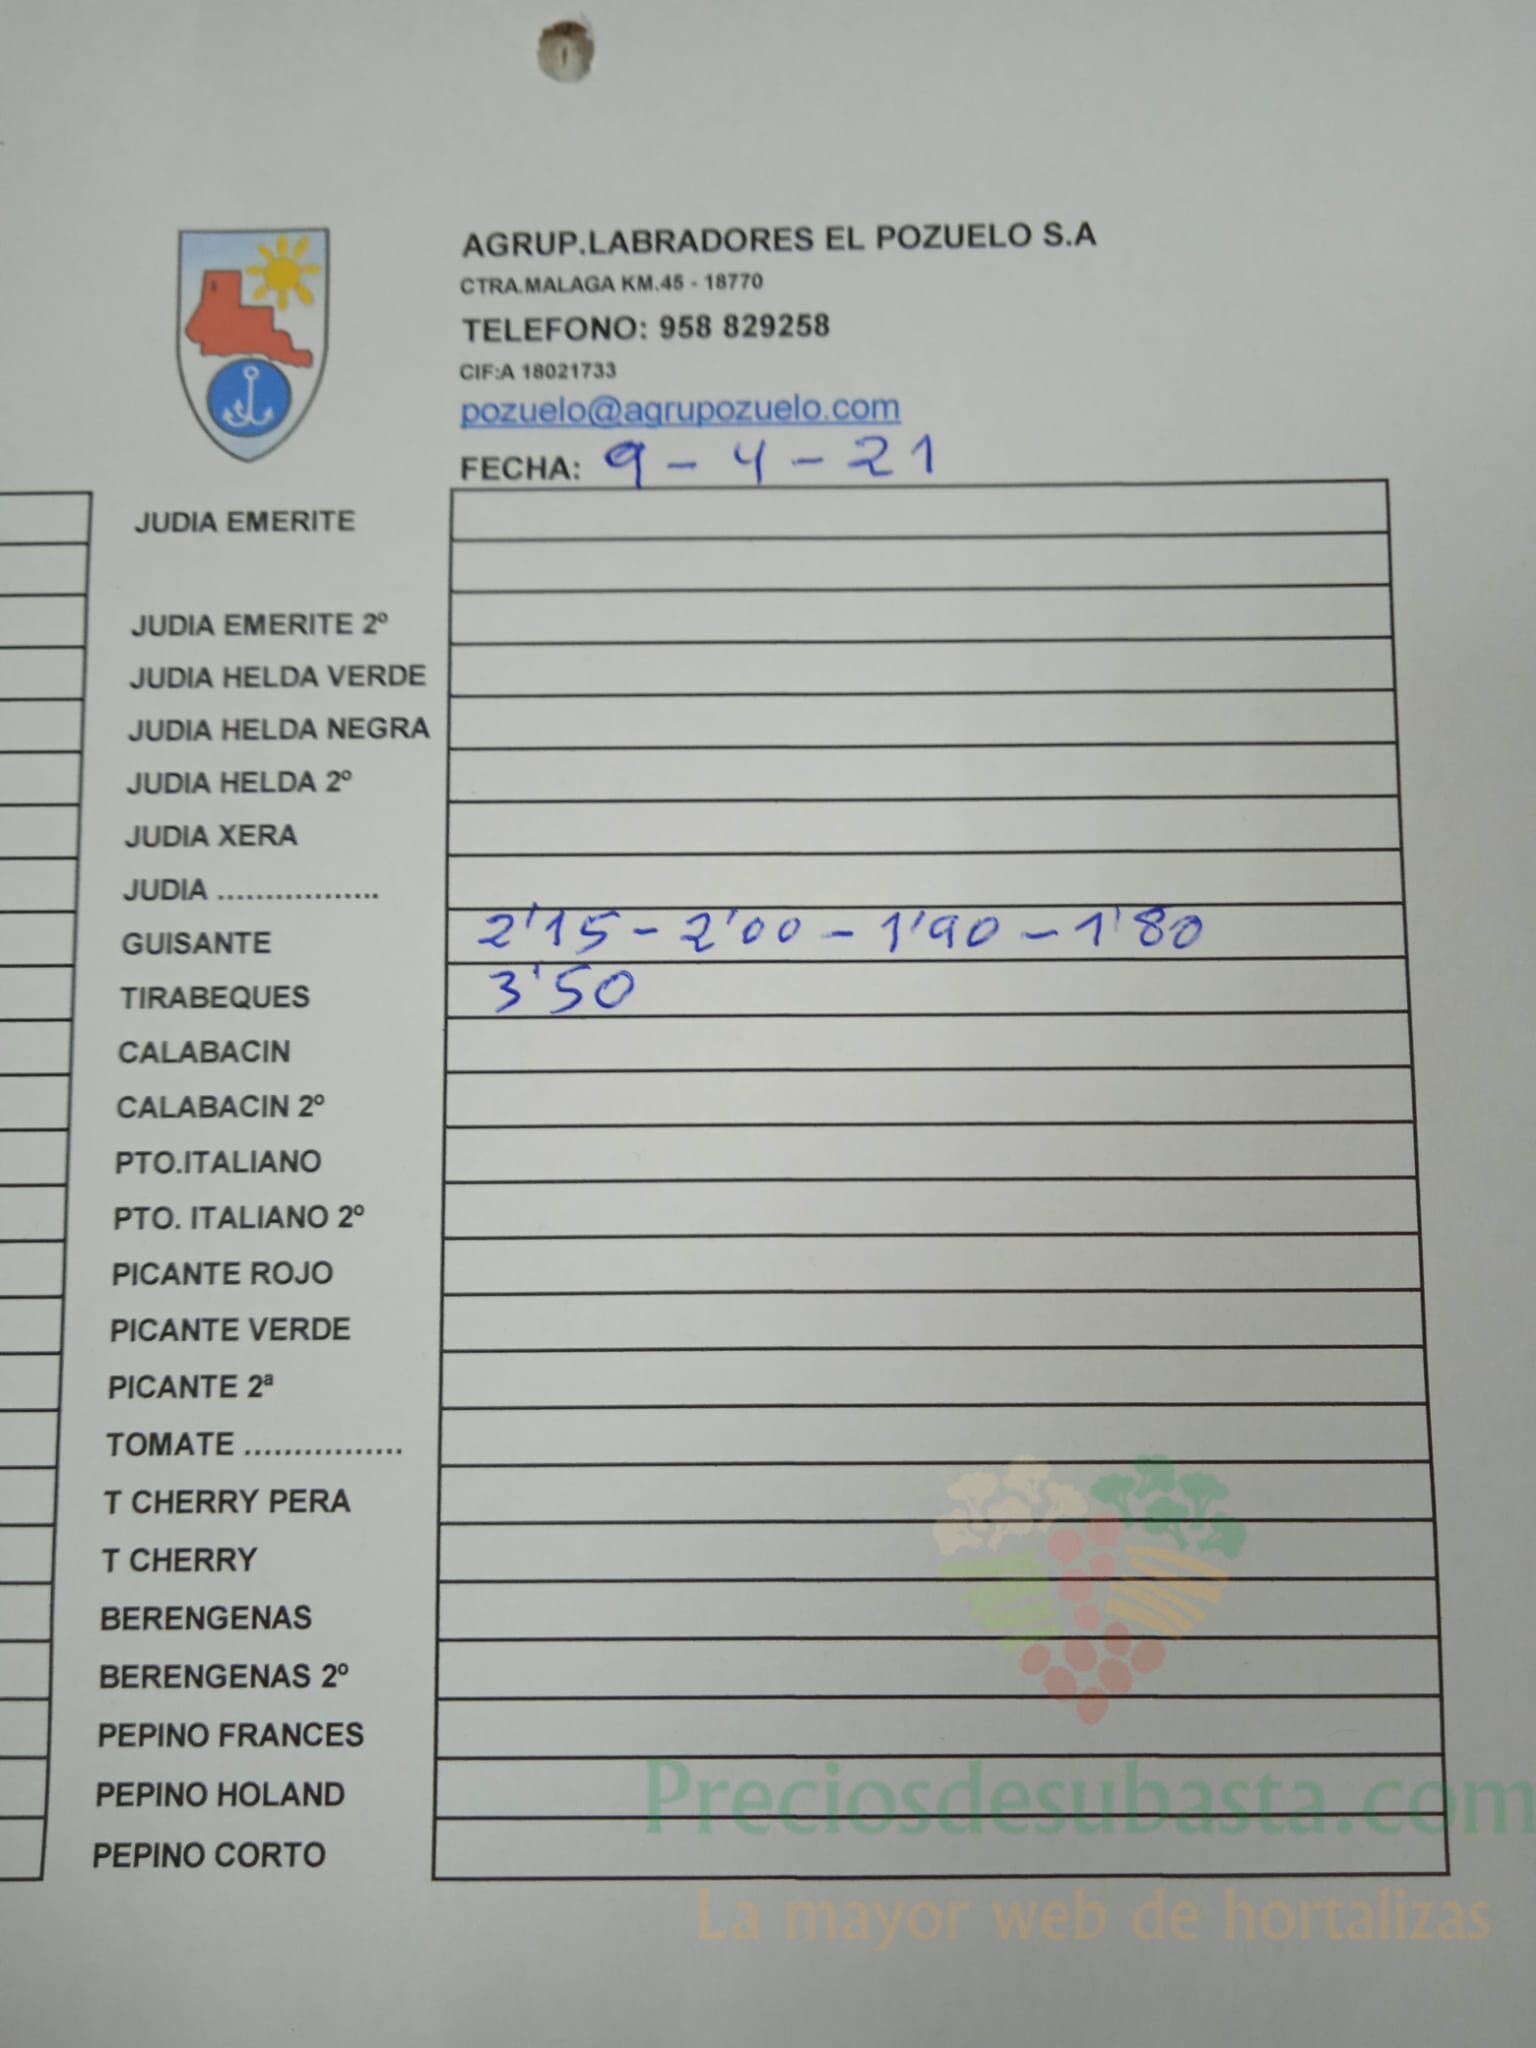 AGRUP.LABRADORES EL POZUELO S.A
CTRA.MALAGA KM.45 - 18770
TELEFONO: 958 829258
CIF:A 18021733
pozuelo@agrupozuelo.com
FECHA: 9 - 4 - 21
JUDIA EMERITE
JUDIA EMERITE 2º
JUDIA HELDA VERDE
JUDIA HELDA NEGRA
JUDIA HELDA 2º
JUDIA XERA
JUDIA .................
GUISANTE 2'15 - 2'00 - 1'90 - 1'80
TIRABEQUES 3'50
CALABACIN
CALABACIN 2º
PTO.ITALIANO
PTO. ITALIANO 2º
PICANTE ROJO
PICANTE VERDE
PICANTE 2ª
TOMATE ................
T CHERRY PERA
T CHERRY
BERENGENAS
BERENGENAS 2º
PEPINO FRANCES
PEPINO HOLAND
PEPINO CORTO
Preciosdesubasta.com
La mayor web de hortalizas